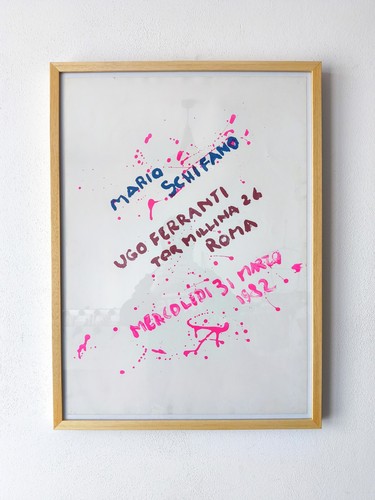 MARIO SCHIFANO
UGO FERRANTI
TOR MILLINA 26
ROMA
MERCOLIDI 31 MARZO
1982